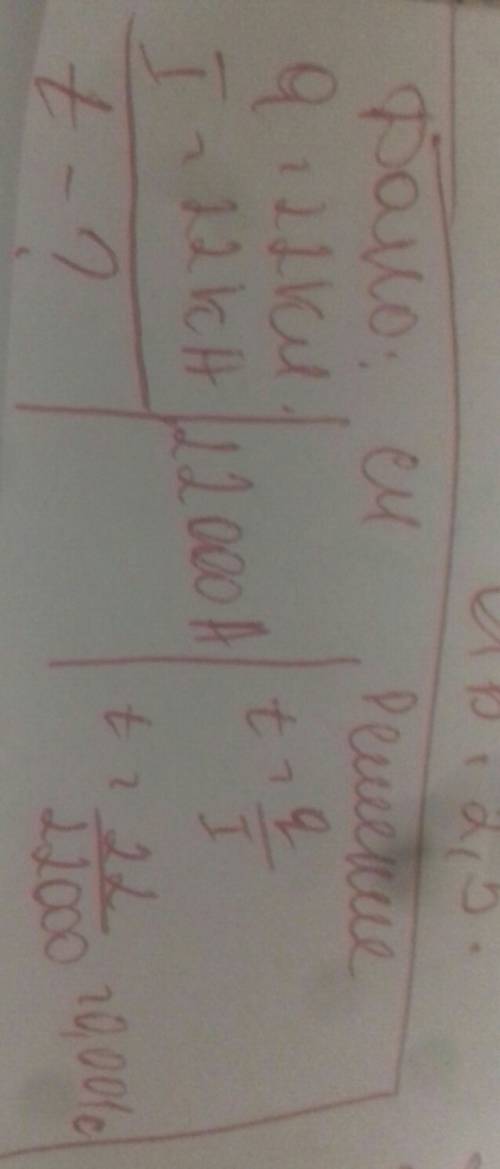 Дано: СИ Решение
q = 22 Кл.
I = 22 кА 22000 А t = q/I
t - ? t = 22/22000 = 0,001с
2,5.